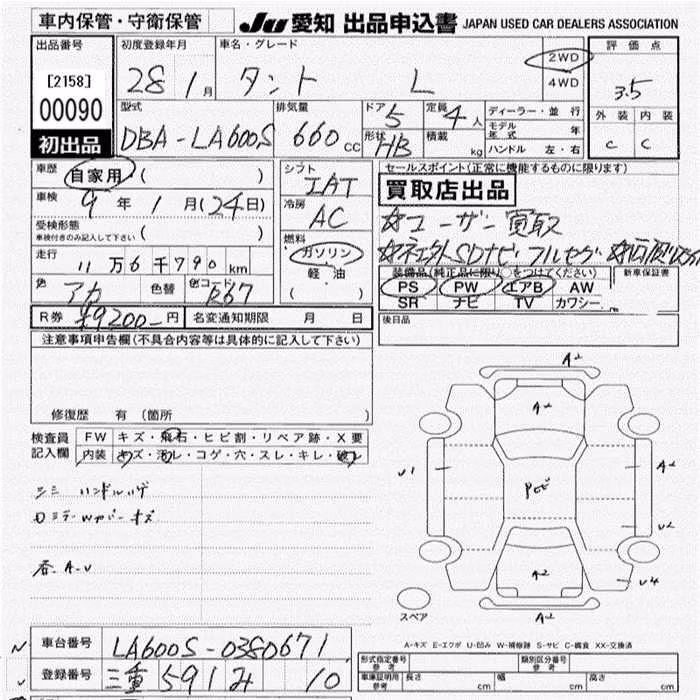 車内保管・守衛保管
JU 愛知 出品申込書 JAPAN USED CAR DEALERS ASSOCIATION
出品番号
[2158]
00090
初出品
初度登録年月
28 1月
車名・グレード
タント L
2WD
4WD
評価点
3.5
外装 内装
C C
型式
DBA-LA600S
排気量
660 CC
ドア
5
形状
HB
定員
4人
積載
kg
ディーラー・並 行
モデル年式 年
ハンドル 左・右
車歴
自家用 ( )
車検
9年 1月(24日)
受検形態
車検付きのみ記入して下さい ( )
走行
11万6千790km
色
アカ
色替
色コード
R67
シフト
IAT
冷房
AC
燃料
ガソリン
軽・油
( )
R券 ¥9200-円
名変通知期限 月 日
セールスポイント(正常に機能するものに限ります)
買取店出品
☆ユーザー買取
☆社外SDナビ・フルセグ
装備品(純正品に限り○をつけてください)
PS PW エアB AW
SR ナビ TV カワシー
新車保証書
後日品
注意事項申告欄(不具合内容等は具体的に記入して下さい)
修復歴 有 (箇所 )
検査員記入欄
FW キズ・飛石・ヒビ割・リペア跡・X要
内装 キズ・汚レ・コゲ・穴・スレ・キレ・破レ
シミ ハンドルハゲ
ロミラーWカバーキズ
A-U
A2
A2
U1
A2
U2
U4
A2
A2
スペア
A-キズ E-エクボ U-凹み W-補修跡 S-サビ C-腐食 XX-交換済
車台番号
LA600S-0380671
登録番号
三重 591 み 10
形式指定番号参考
類別区分番号参考
車庫証明用参考
長さ cm
幅 cm
高さ cm